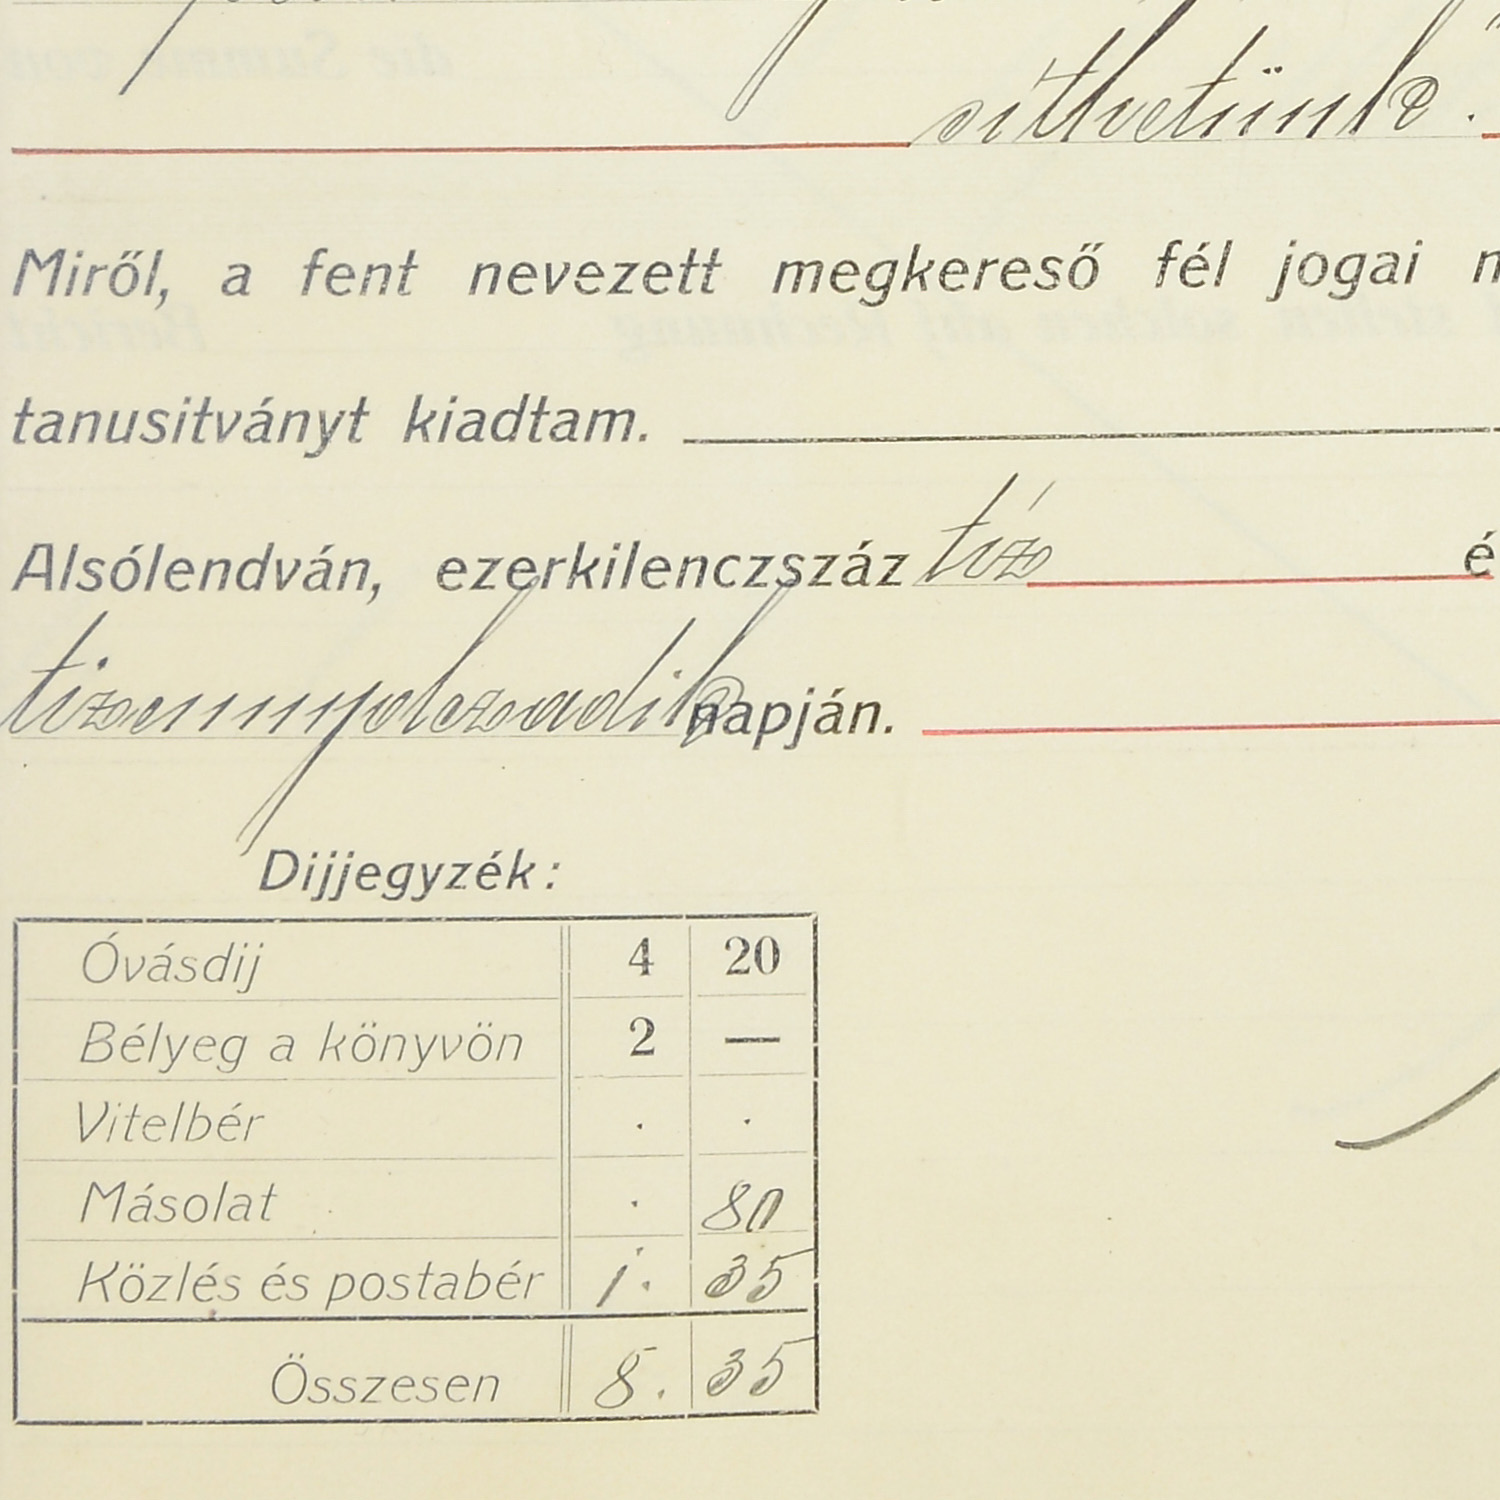 sithetünk.
Miről, a fent nevezett megkereső fél jogai
tanusitványt kiadtam.
Alsólendván, ezerkilenczszáz tíz é
tizennyolczadik napján.
Dijjegyzék:
Óvásdij 4 20
Bélyeg a könyvön 2 —
Vitelbér . .
Másolat . 80
Közlés és postabér 1. 35
Összesen 8. 35